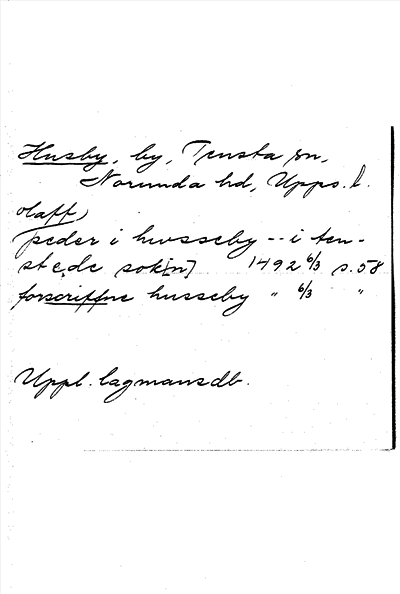 Husby, by, Tensta sn,
Norunda hd, Upps. l.
olaff)
peder i hwsseby -- i ten-
stede sok[n] 1492 6/3 s. 58
forscriffne husseby " 6/3 "
Uppl. lagmansdb.